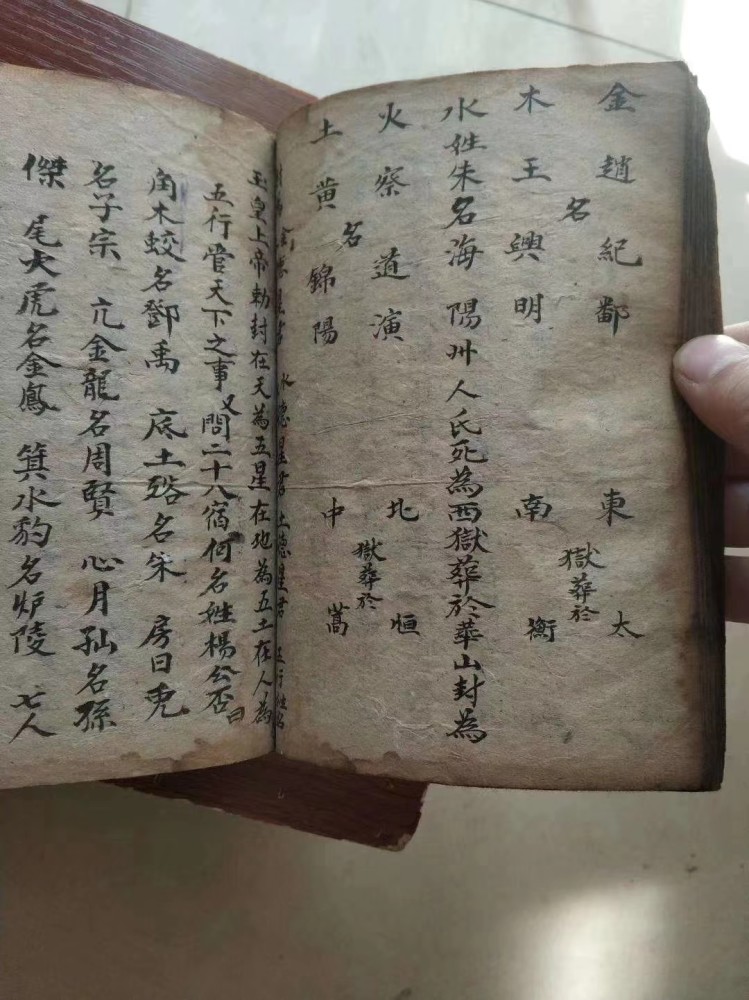 金趙紀鄱 東 太
名 獄葬於
木王興明 南 衡
水姓朱名海陽州人氏死為西獄葬於華山封為
火察道演 北 恒
名 獄葬於
土黃錦陽 中 嵩
水德星君 土德星君 五行姓名
玉皇上帝勅封在天為五星在地為五土在人為
五行管天下之事又問二十八宿何名姓楊公否曰
角木蛟名鄧禹 底土狢名朱 房日兔
名子宗 亢金龍名周賢 心月狐名孫
傑 尾火虎名金鳳 箕水豹名炉陵 七人